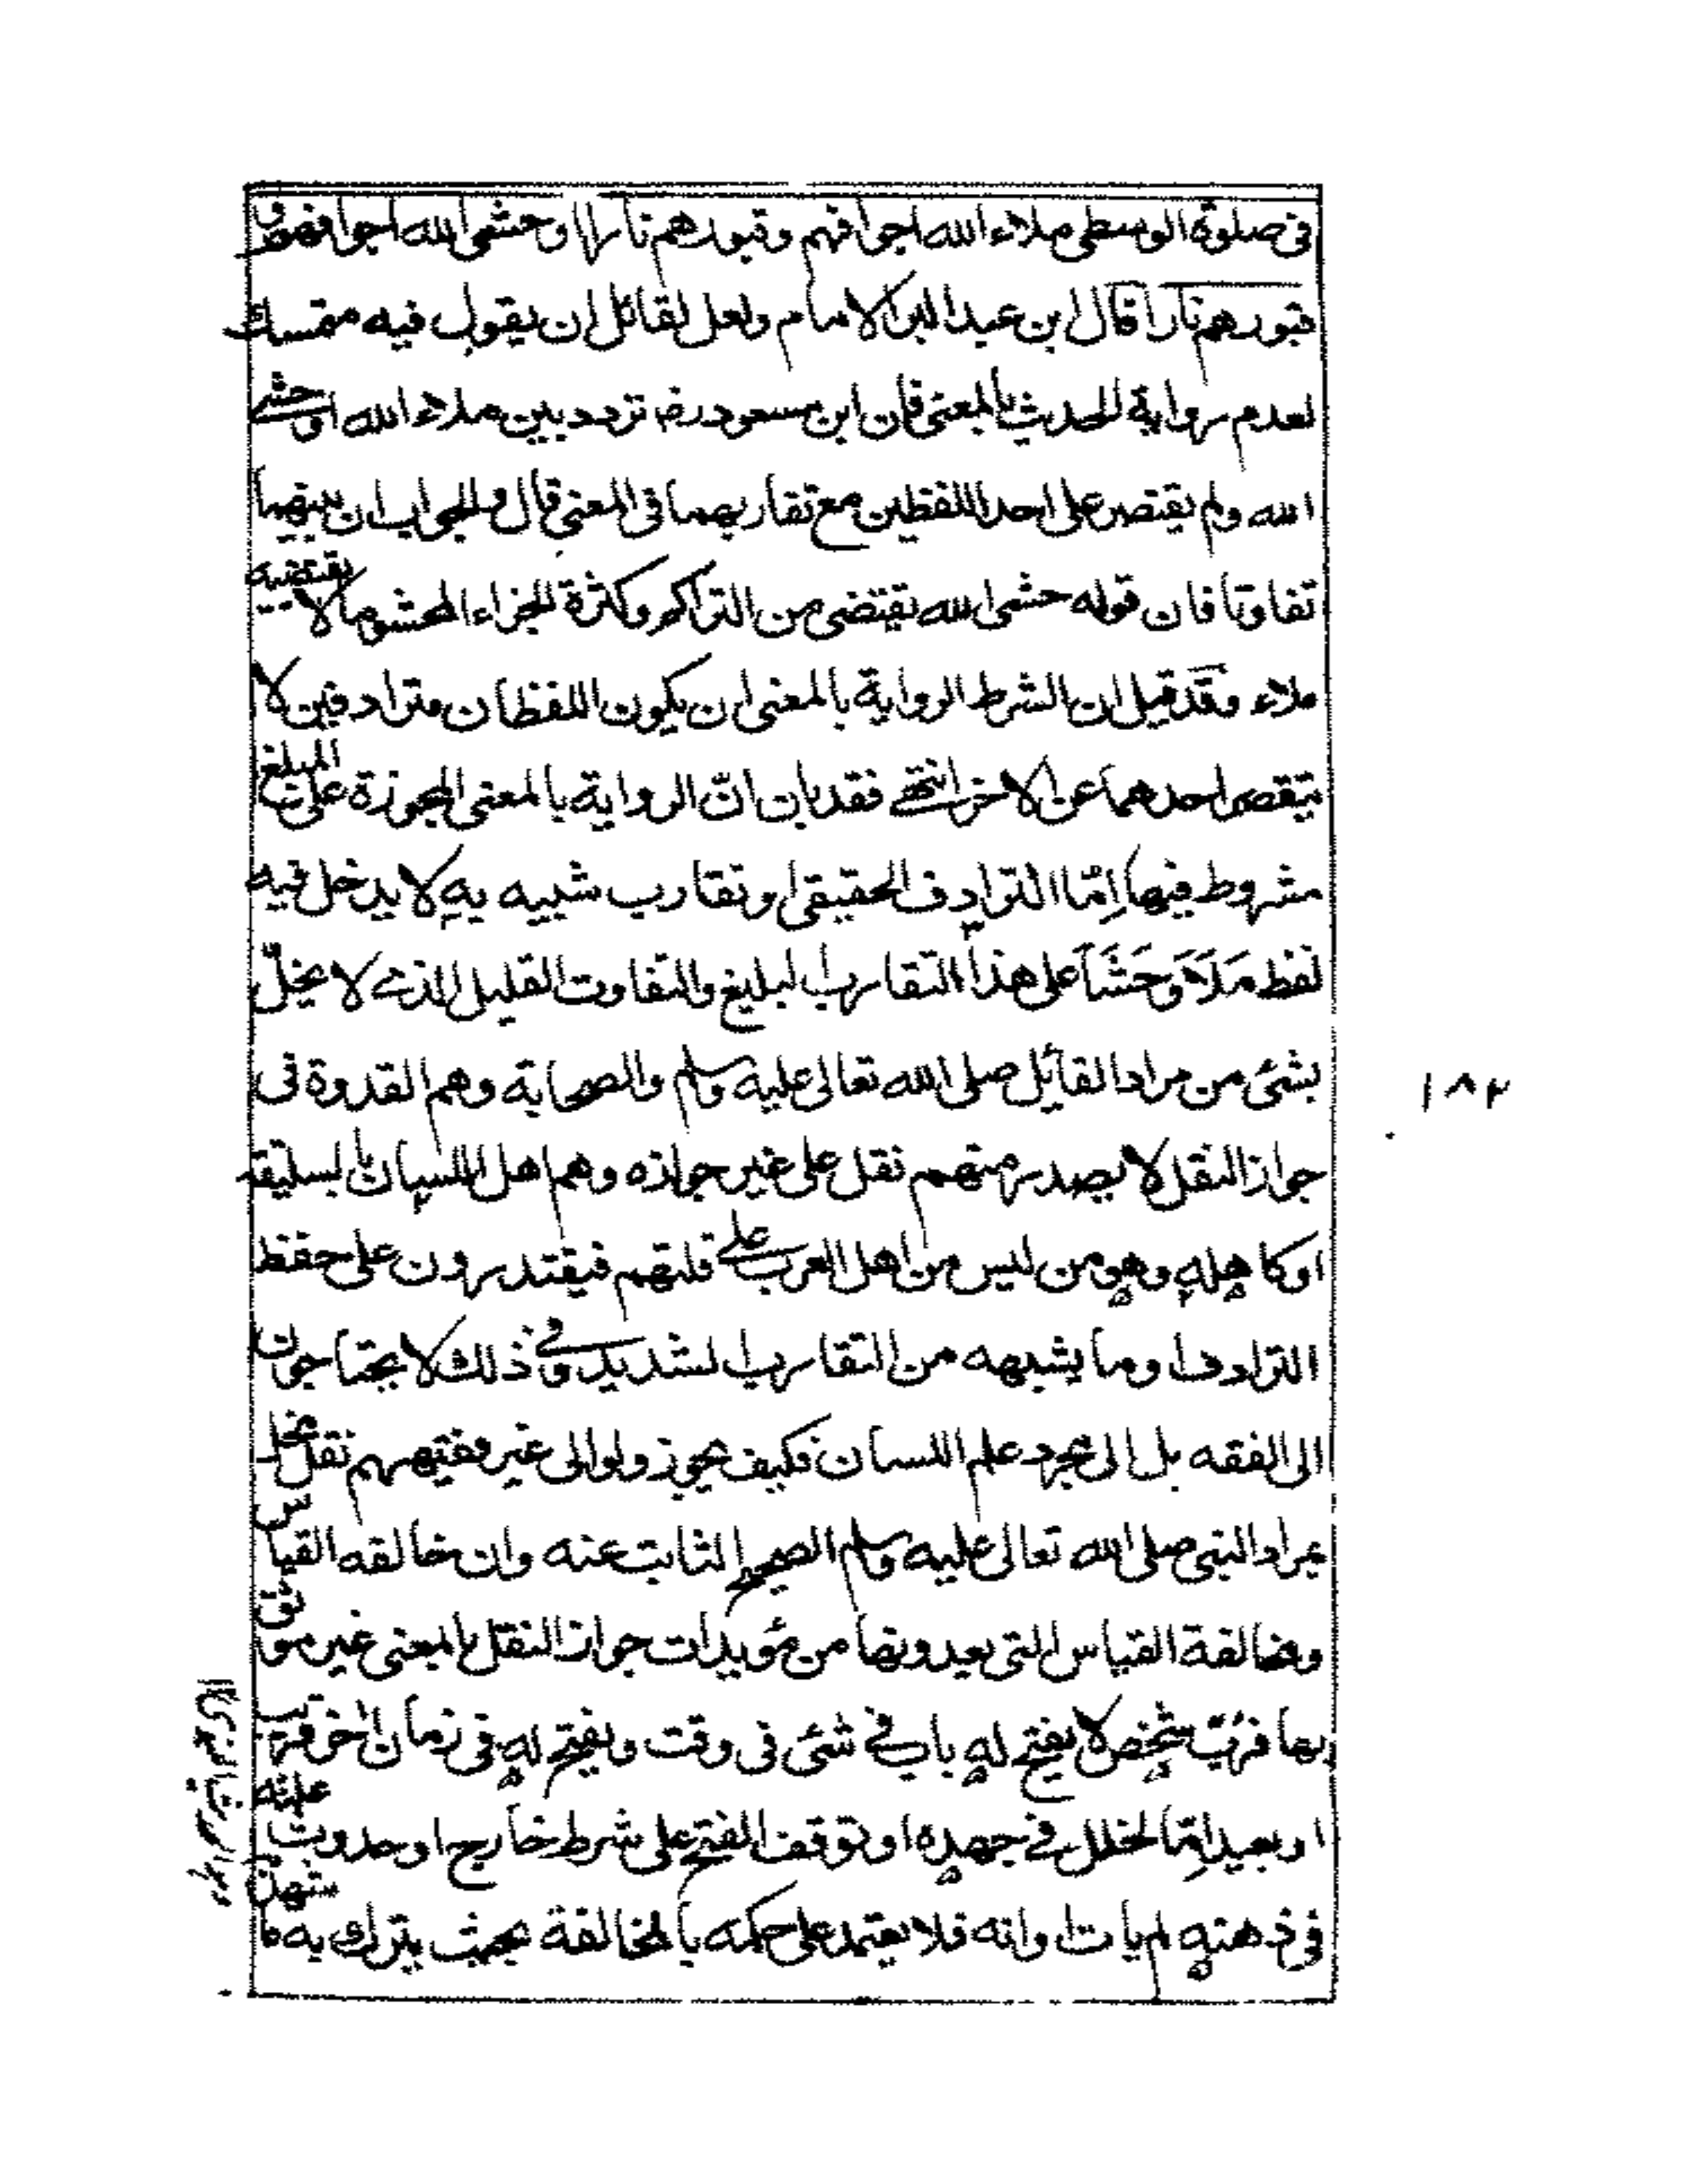 فى صلوة الوسطى ملاء الله اجوافهم وقبورهم نارا او حشى الله اجوافهم و
قبورهم نارا قال ابن عبد البر الامام ولعل لقائل ان يقول فيه متمسك
لعدم رواية الحديث بالمعنى فان ابن مسعود رضـ تردد بين ملاء الله او حشى
الله ولم يقتصر على احد اللفظين مع تقاربهما فى المعنى قال والجواب ان بينهما
تفاوتا فان قوله حشى الله يقتضى من التراكم وكثرة اجزاء المحشو ما لا يقتضيه
ملاء وقد قيل ان الشرط الرواية بالمعنى ان يكون اللفظان مترادفين لا
يقصر احدهما عن الاخر انتهى فقد بان انّ الرواية بالمعنى المجوزة على المبلغ
مشروط فيها اِمّا الترادف الحقيقى او تقارب شبيه به لا يدخل فيه
لفظ مَلَاَ وَحَشَاَ على هذا التقارب البليغ والتفاوت القليل الذى لا يخلّ
بشئ من مراد القائل صلى الله تعالى عليه وسلم والصحابة وهم القدوة فى
جواز النقل لا يصدر منهم نقل على غير جوازه وهم اهل اللسان بالسليقة
او كاهله وهو من ليس من اهل العرب على قلتهم فيقتدرون على حفظ
الترادف او ما يشبهه من التقارب الشديد وفى ذلك لا يحتاجون
الى الفقه بل الى مجرد علم اللسان فكيف يجوز ولو الى غير فقيههم نقل مخل
بمراد النبى صلى الله تعالى عليه وسلم الصحيح الثابت عنه وان خالفه القياس
ومخالفة القياس التى يعدونها من مؤيدات جواز النقل بالمعنى غير موثوق
بها فربّ شخص لا يفتح له باب فى شئ فى وقت ويفتح له فى زمان اخر قريب
او بعيد اِمّا لخلل فى جهده او توقف الفتح على شرط خارج او حدوث علته
فى ذهنه لم يات اوانه فلا يعتمد على حكمه بالمخالفة بحيث يترك به ما
١٨٢